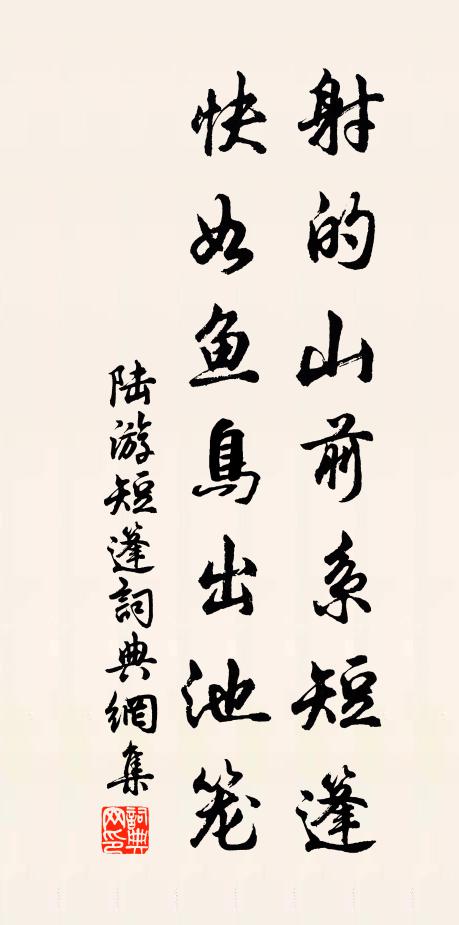 射的山前系短篷
快如鱼鳥出池笼
陆游短篷詞典網集
詞典网印